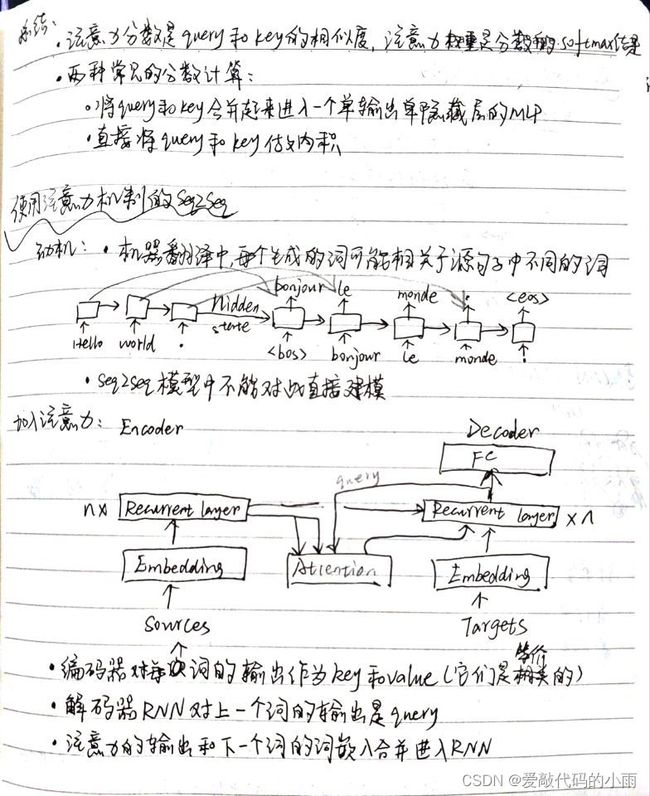 总结:
·注意力分数是query和key的相似度,注意力权重是分数的softmax结果
·两种常见的分数计算:
·将query和key合并起来进入一个单输出单隐藏层的MLP
·直接将query和key做内积
使用注意力机制的seq2seq
动机:·机器翻译中,每个生成的词可能相关于源句子中不同的词
bonjour le monde . <eos>
hidden state
Hello world . <bos> bonjour le monde .
·seq2seq模型中不能对此直接建模
加入注意力: Encoder Decoder
FC
query
n× Recurrent layer Recurrent layer ×n
Embedding Attention Embedding
Sources Targets
等价
·编码器对每次词的输出作为key和value(它们是的)
·解码器RNN对上一个词的输出是query
·注意力的输出和下一个词的词嵌入合并进入RNN
CSDN @爱敲代码的小雨